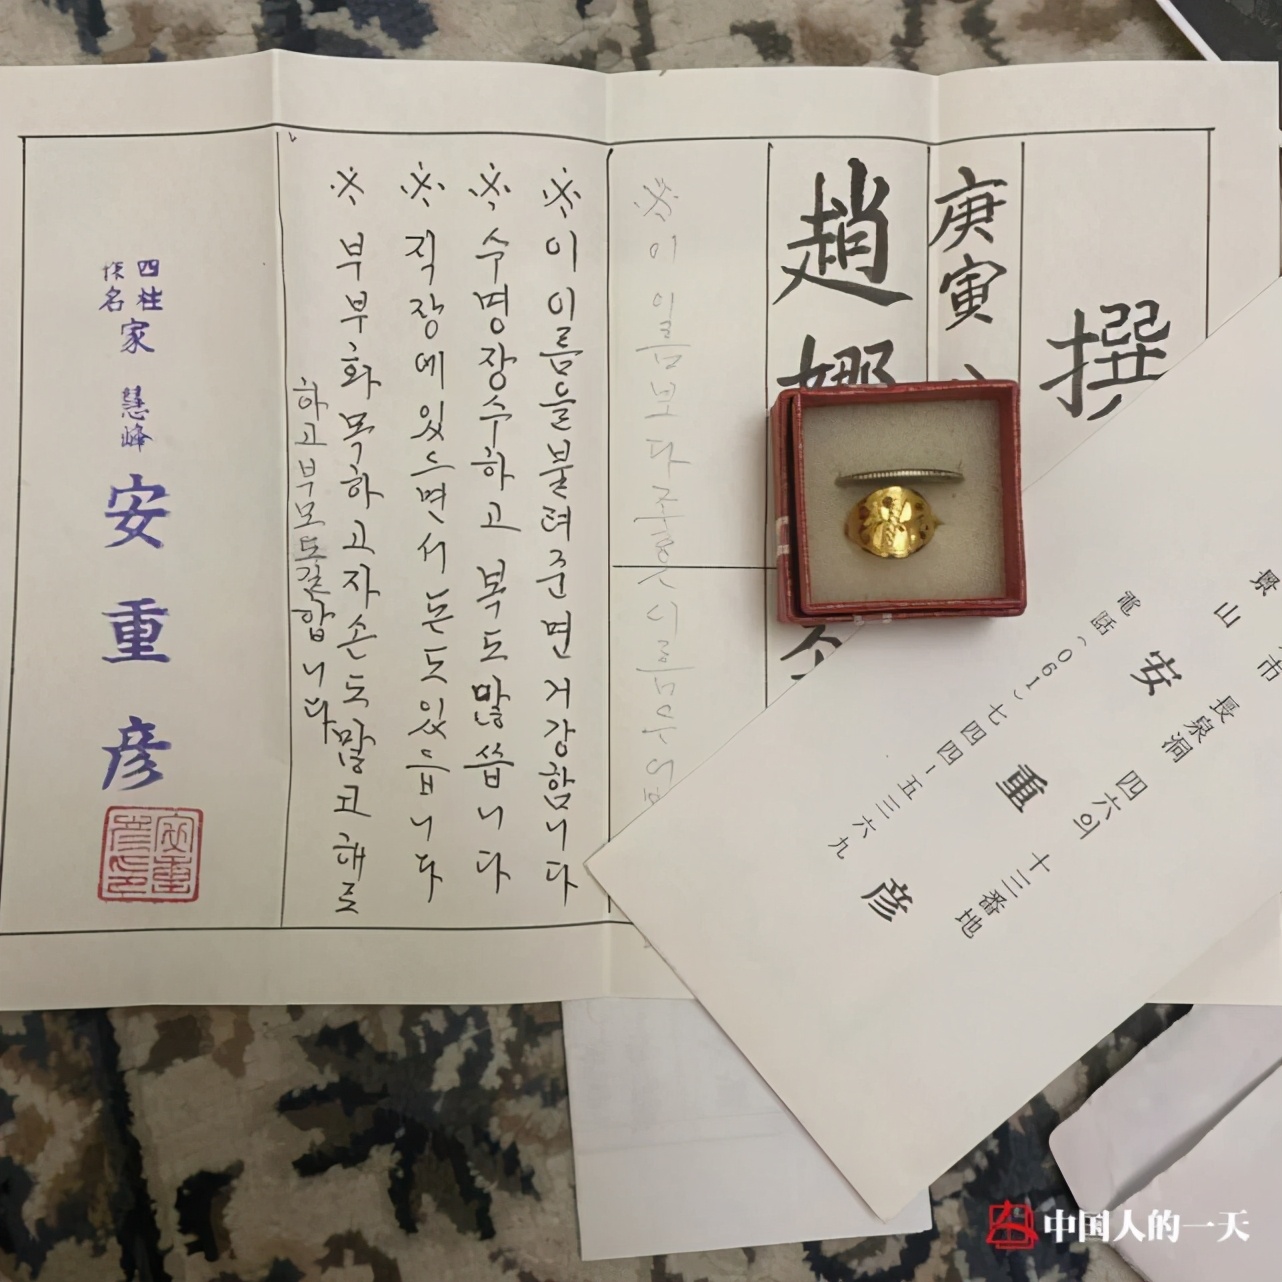 撰
庚寅
趙娜
※ 이 이름보다 좋은 이름
※ 이 이름을 불려준면 거강함니다
※ 수명장수하고 복도많씁니다
※ 직장에있으면서 돈도있읍니다
※ 부부화목하고자손도많고해로
하고부모도길합니다
四柱
家 慧峰
安重彦
長泉洞 四六의 十三番地
安重彦
電話(061)七四四-五三六九
中国人的一天